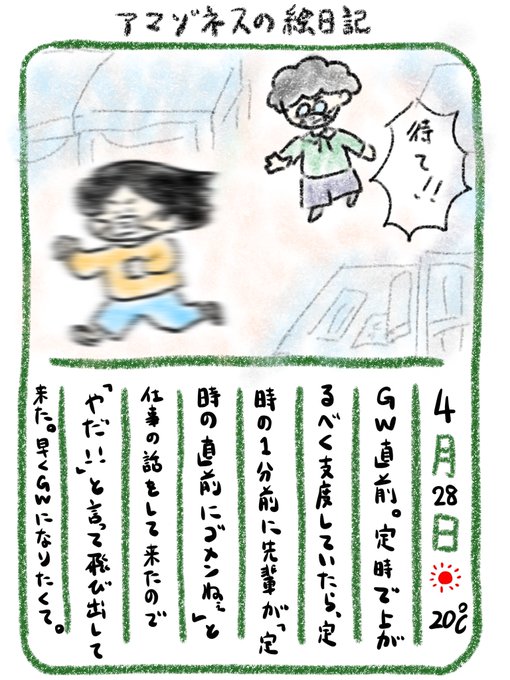 アマゾネスの絵日記
待て!!
4月28日 20℃
GW直前。定時で上が
るべく支度していたら、定
時の1分前に先輩が「定
時の直前にゴメンねぇ」と
仕事の話をして来たので
「やだ!!」と言って飛び出して
来た。早くGWになりたくて。